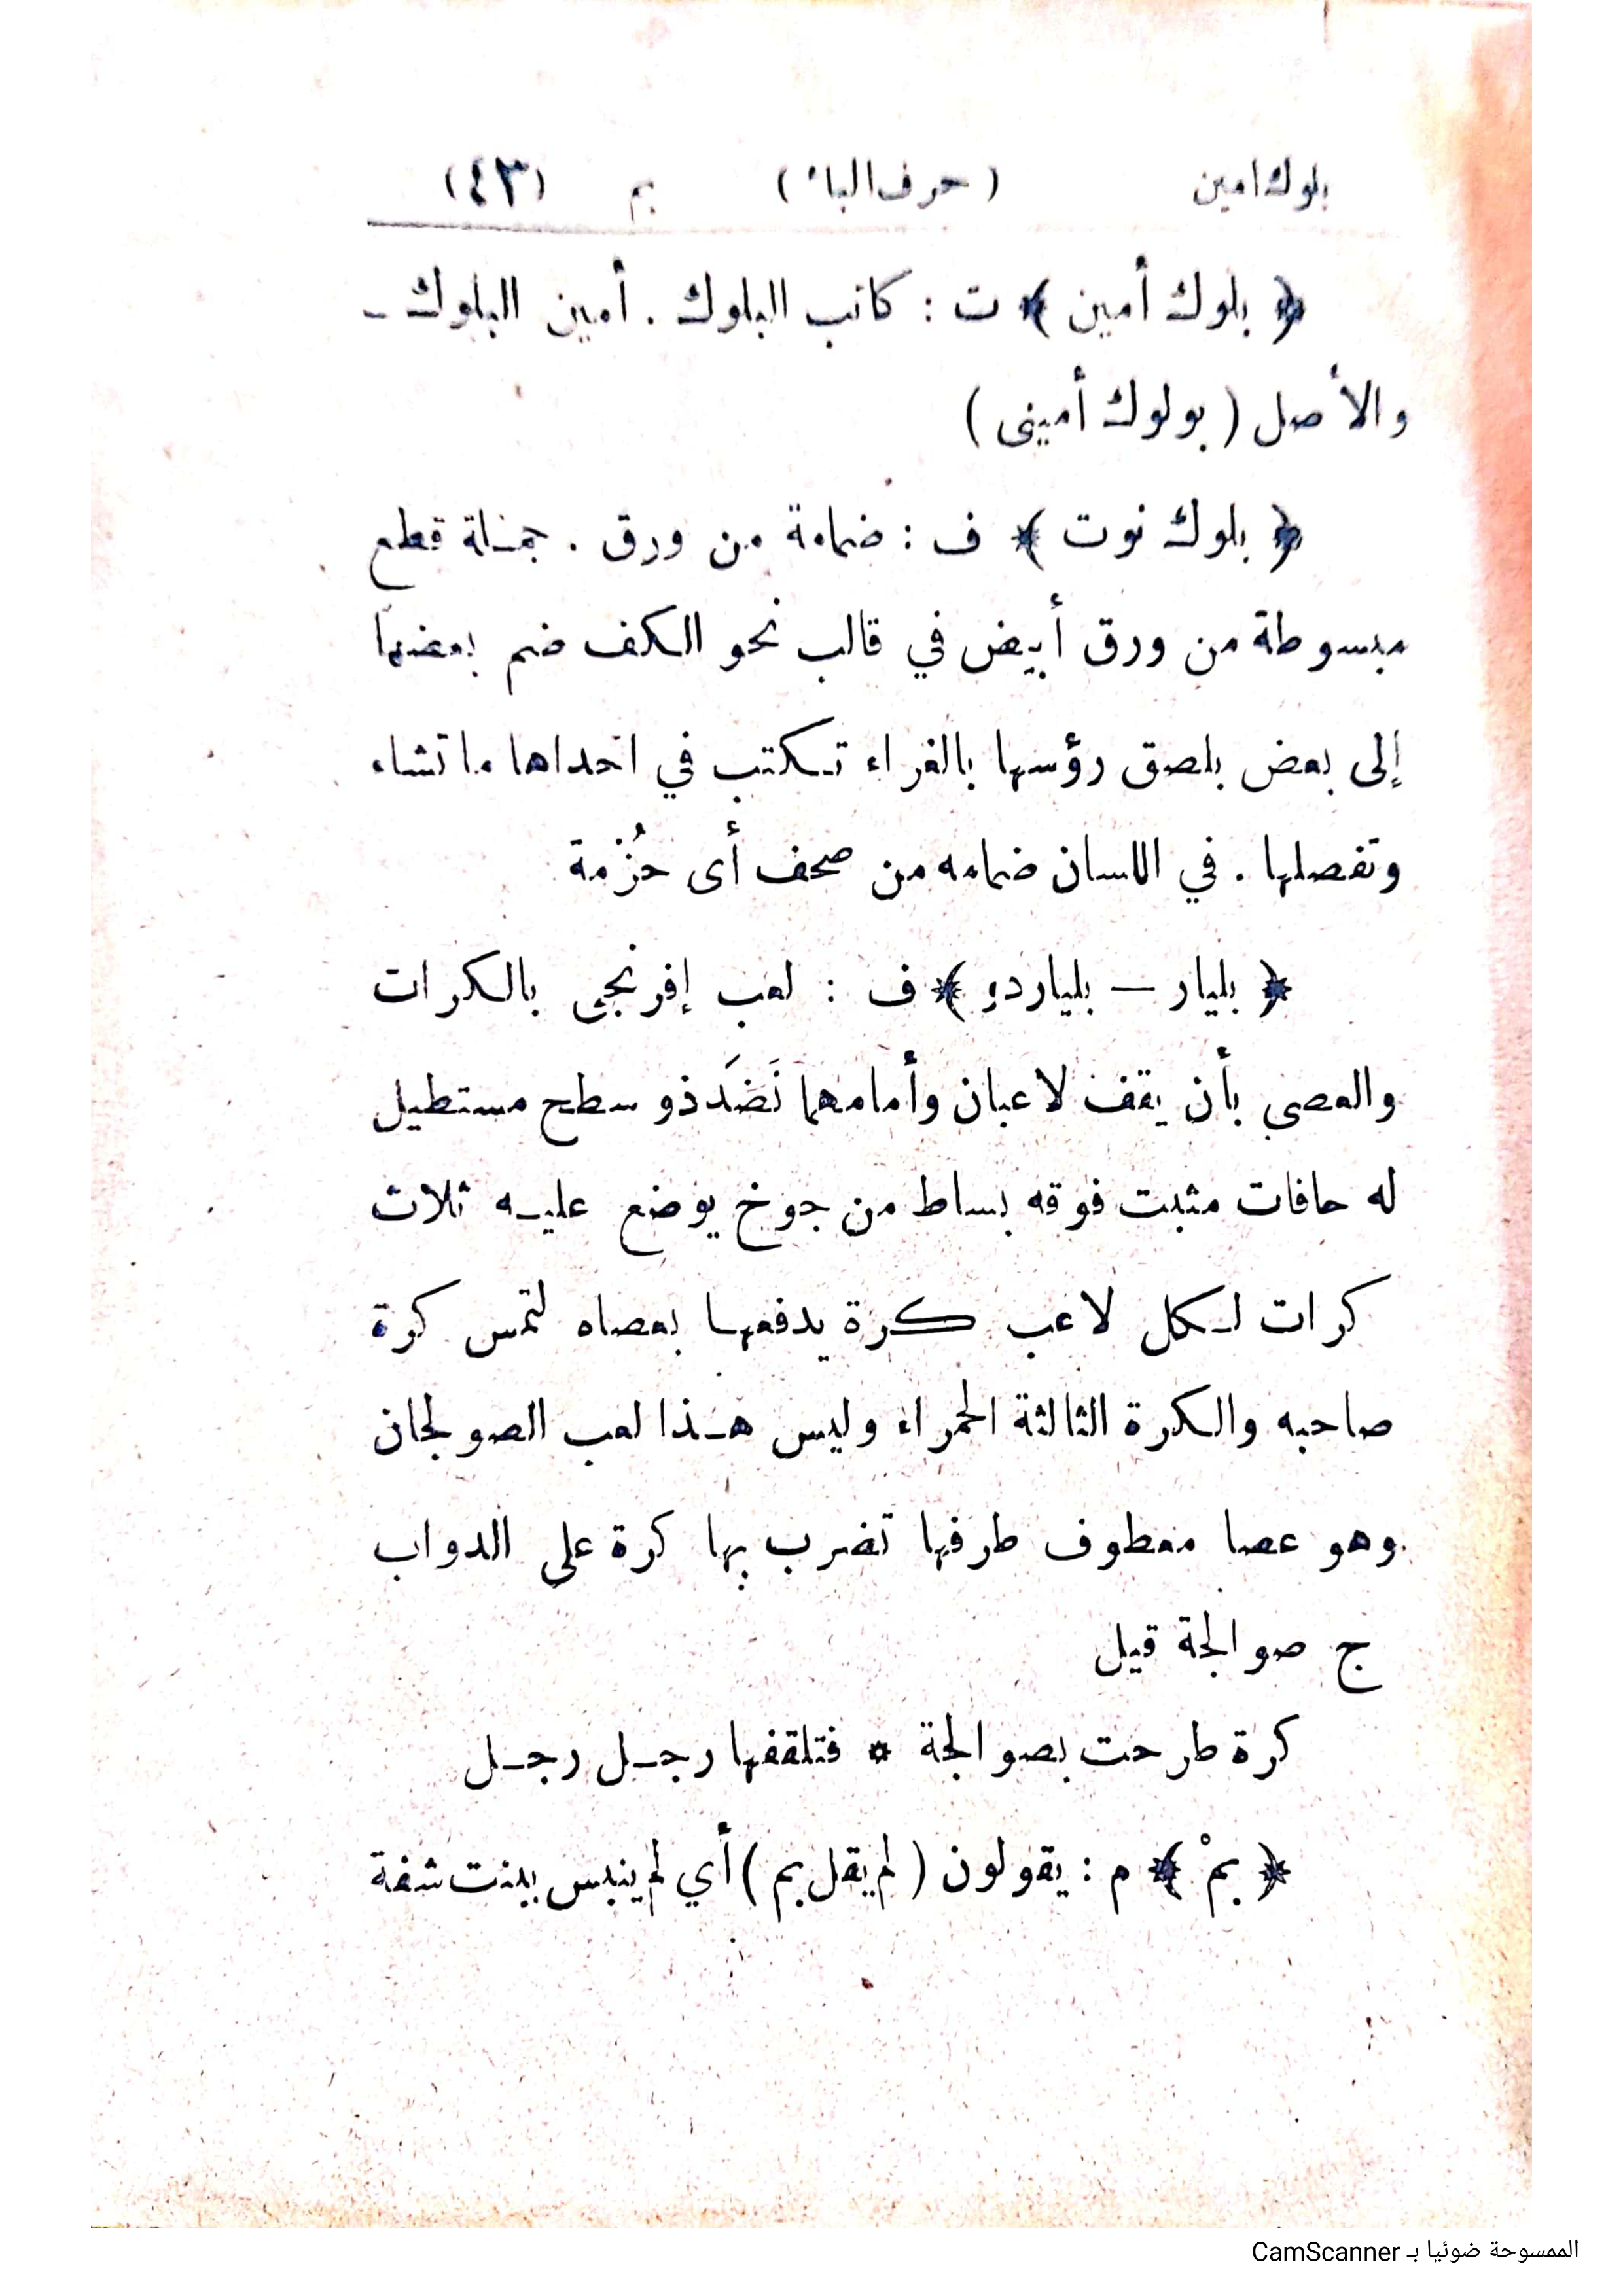 بلوك امين ( حرف الباء ) بم (٤٣)
﴿ بلوك أمين ﴾ ت : كاتب البلوك . أمين البلوك –
والأصل ( بولوك أمينى )
﴿ بلوك نوت ﴾ ف : ضمامة من ورق . جملة قطع
مبسوطة من ورق أبيض في قالب نحو الكف ضم بعضها
إلى بعض بلصق رؤسها بالغراء تكتب في احداها ما تشاء
وتفصلها . في اللسان ضمامه من صحف أى حُزْمة
﴿ بليار — بلياردو ﴾ ف : لعب إفرنجى بالكرات
والعصى بأن يقف لاعبان وأمامهما نَضَد ذو سطح مستطيل
له حافات مثبت فوقه بساط من جوخ يوضع عليه ثلاث
كرات لكل لاعب كرة يدفعها بعصاه لتمس كرة
صاحبه والكرة الثالثة الحمراء وليس هذا لعب الصولجان
وهو عصا معطوف طرفها تضرب بها كرة على الدواب
ج صوالجة قيل
كرة طرحت بصوالجة * فتلقفها رجل رجل
﴿ بمْ ﴾ م : يقولون ( لم يقل بم ) أي لم ينبس ببنت شفة
الممسوحة ضوئيا بـ CamScanner